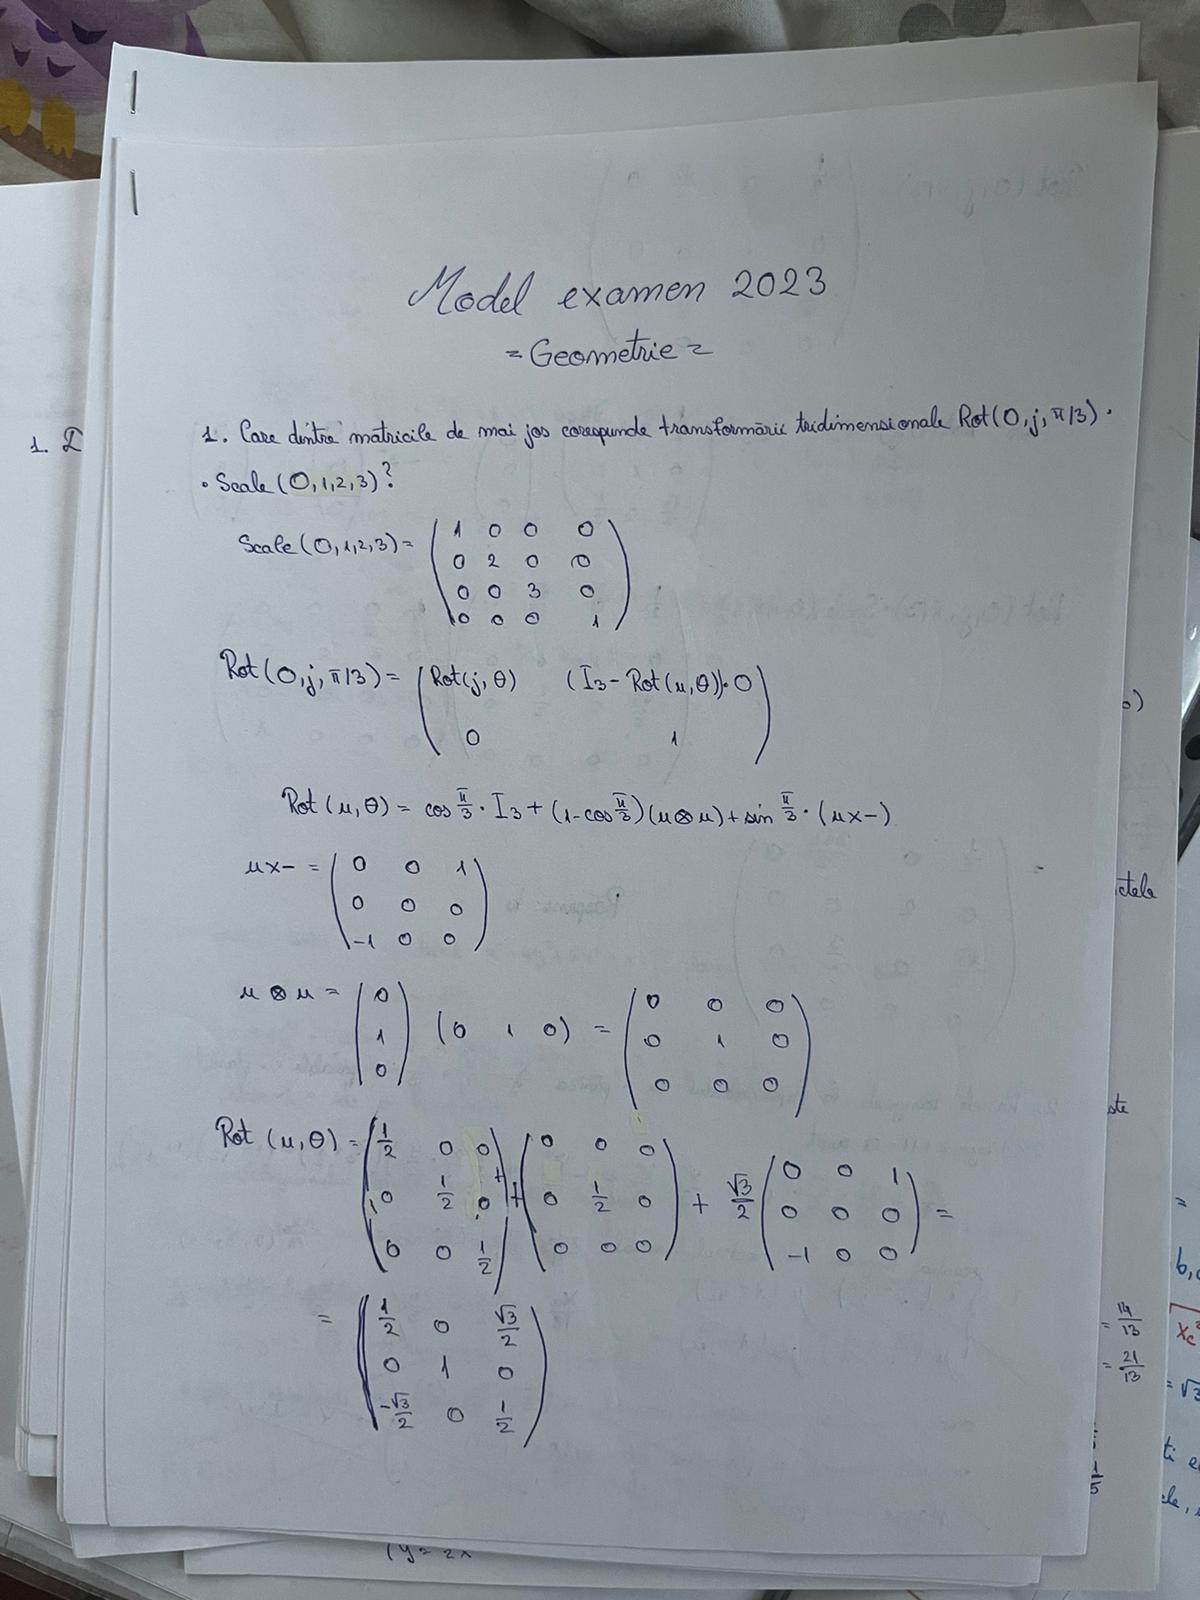 Model examen 2023
= Geometrie =
1. Care dintre matricile de mai jos corespunde transformării tridimensionale Rot(O,j,π/3) ·
· Scale(O,1,2,3)?
Scale(O,1,2,3) =
1 0 0 0
0 2 0 0
0 0 3 0
0 0 0 1
Rot(O,j,π/3) =
Rot(j,θ) (I3 - Rot(u,θ))·O
0 1
Rot(u,θ) = cos π/3 · I3 + (1-cos π/3)(u⊗u) + sin π/3 · (ux-)
ux- =
0 0 1
0 0 0
-1 0 0
u ⊗ u =
0
1
0
(0 1 0) =
0 0 0
0 1 0
0 0 0
Rot (u,θ) =
1/2 0 0
0 1/2 0
0 0 1/2
+
0 0 0
0 1/2 0
0 0 0
+ √3/2
0 0 1
0 0 0
-1 0 0
=
=
1/2 0 √3/2
0 1 0
-√3/2 0 1/2
1.
ctele
= 14/13
= 21/13
1/5
(y = 2x